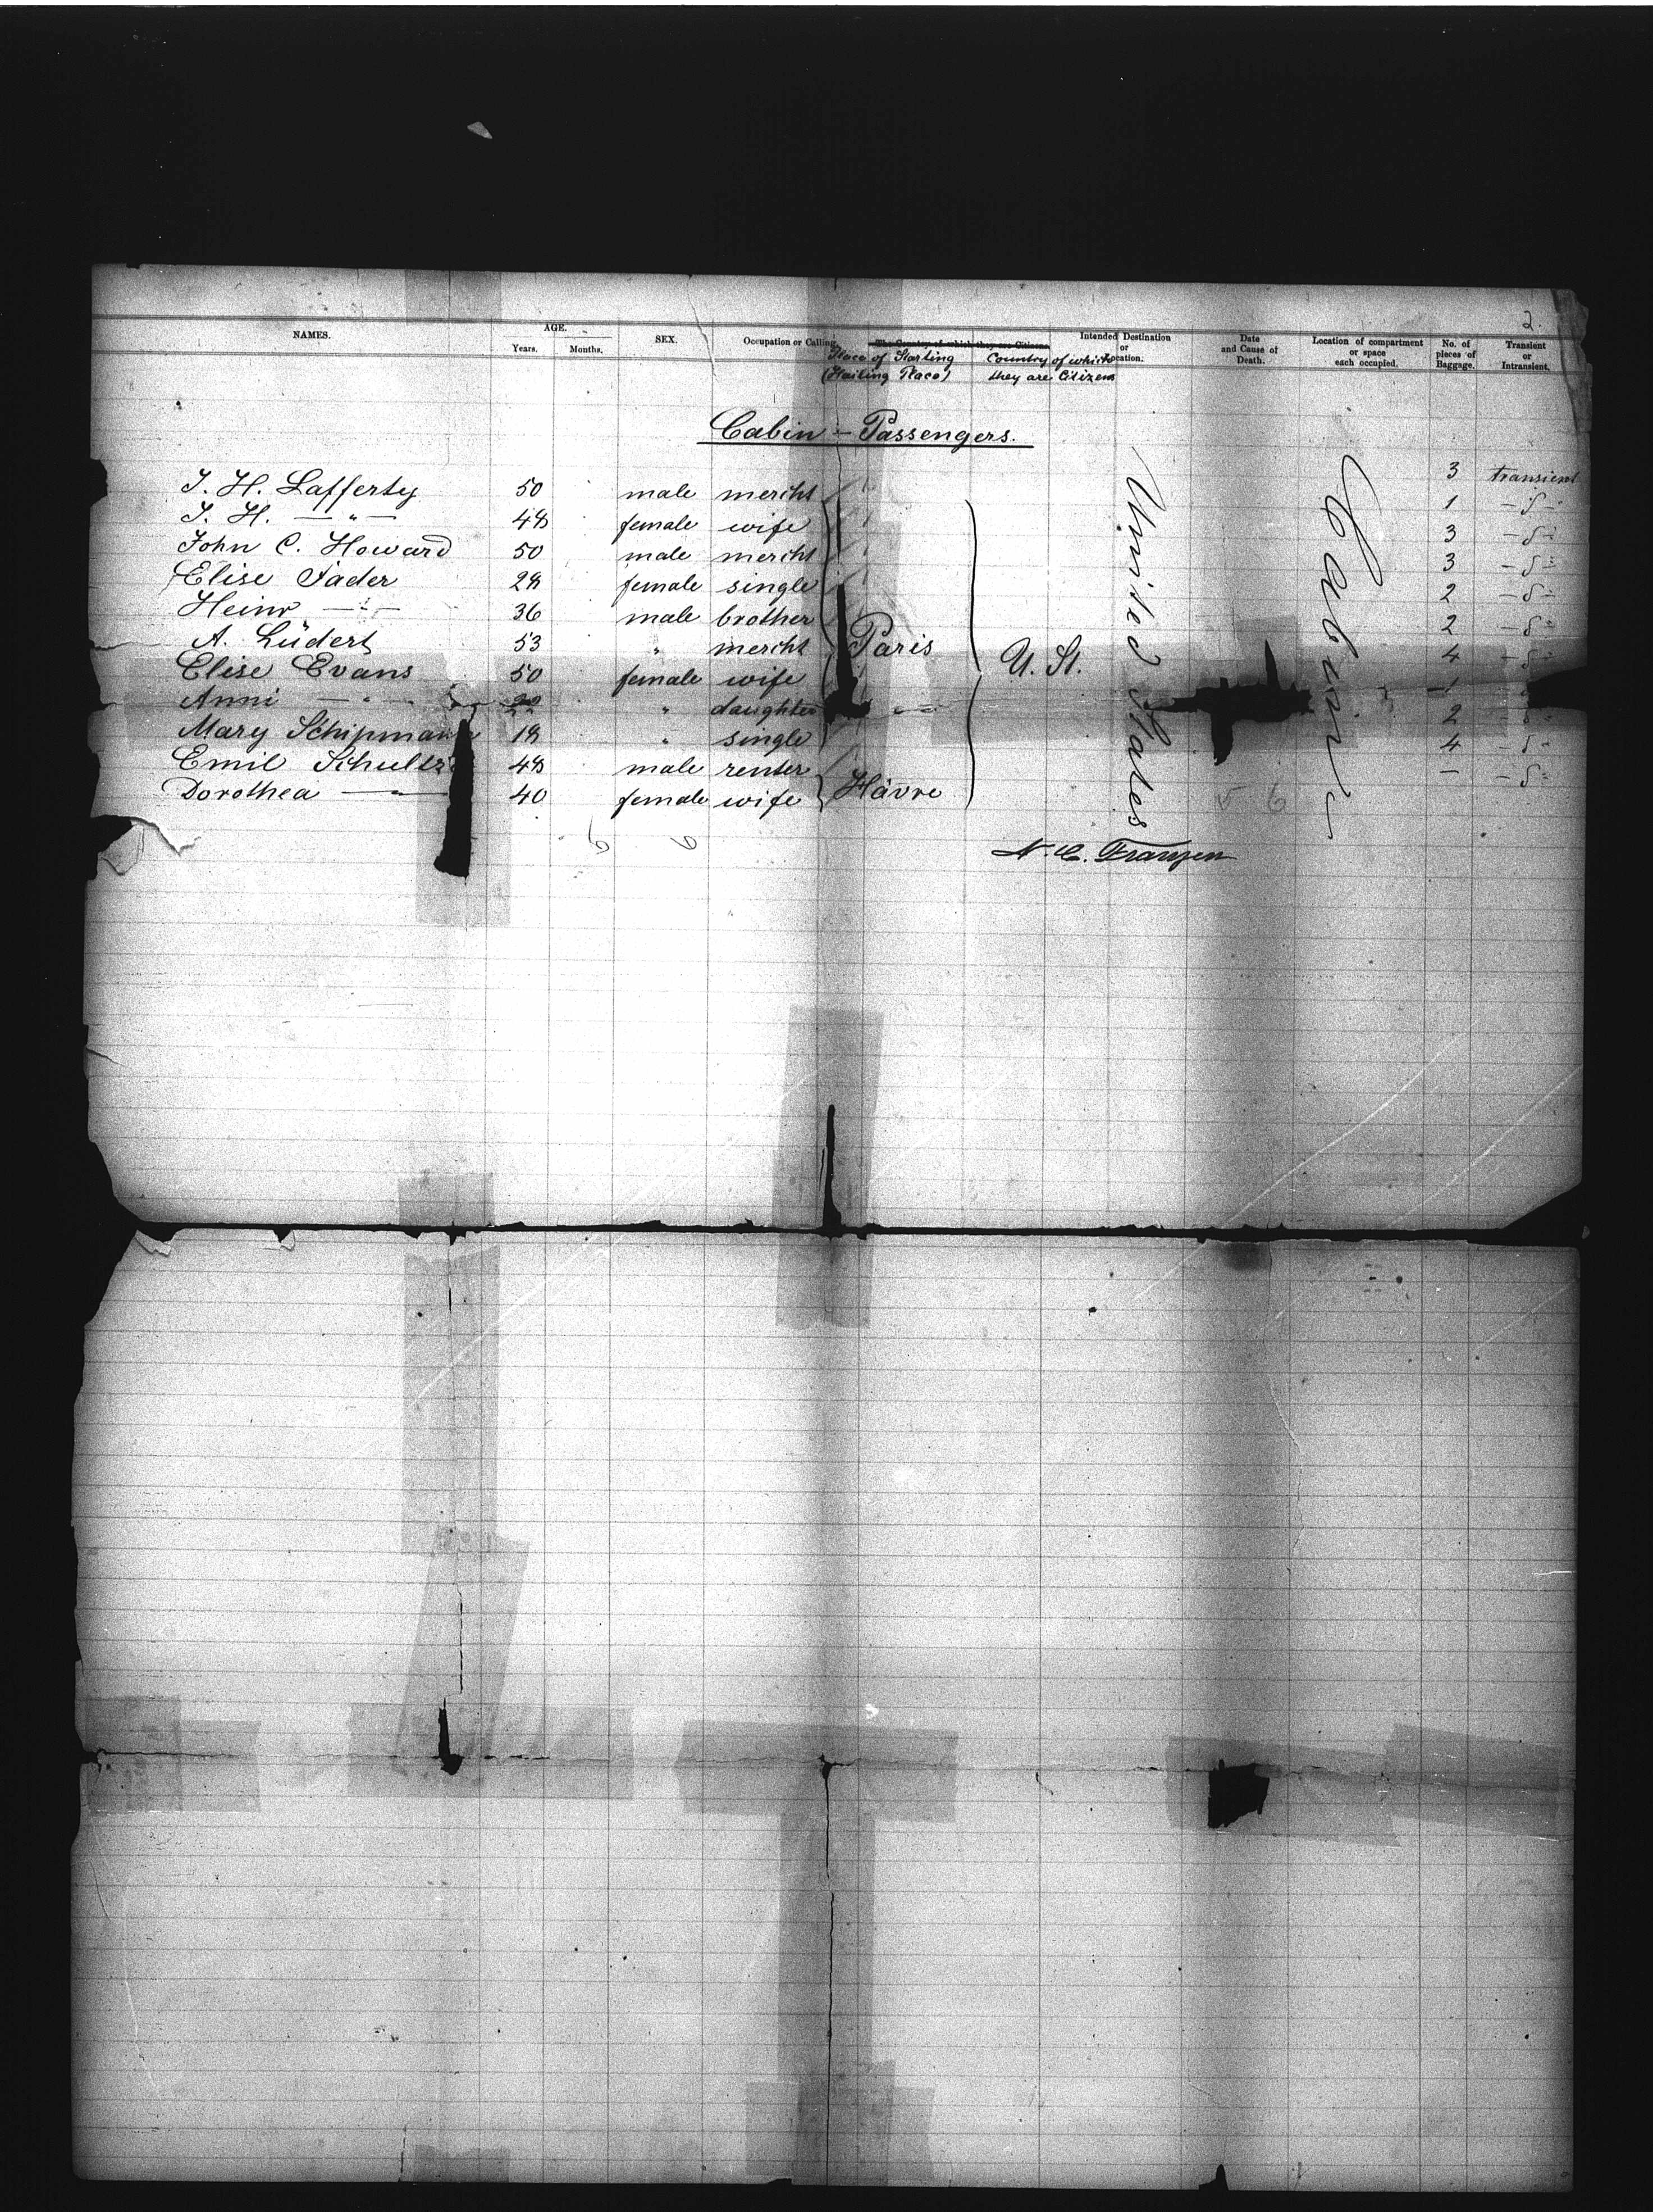 2.
NAMES. AGE. SEX. Occupation or Calling. The Country of which they are Citizens. Intended Destination or Location. Date and Cause of Death. Location of compartment or space each occupied. No. of pieces of Baggage. Transient or Intransient.
Years. Months.
Place of Starting Country of which
(Starting Place) they are Citizens
Cabin - Passengers.
J. H. Lafferty 50 male mercht 3 transient
J. H. — " — 48 female wife 1 - d -
John C. Howard 50 male mercht 3 - d -
Elise Fader 28 female single 3 - d -
Heinr — " — 36 male brother 2 - d -
A. Lüders 53 " mercht Paris 2 - d -
Elise Evans 50 female wife U. St. 4 - d -
Anni — " — " daughter — " — 1
Mary Schipmann 18 " single 2 - d -
Emil Schultz 48 male renter 4 - d -
Dorothea — " — 40 female wife Hâvre — - d -
United States
Cabin
5 6